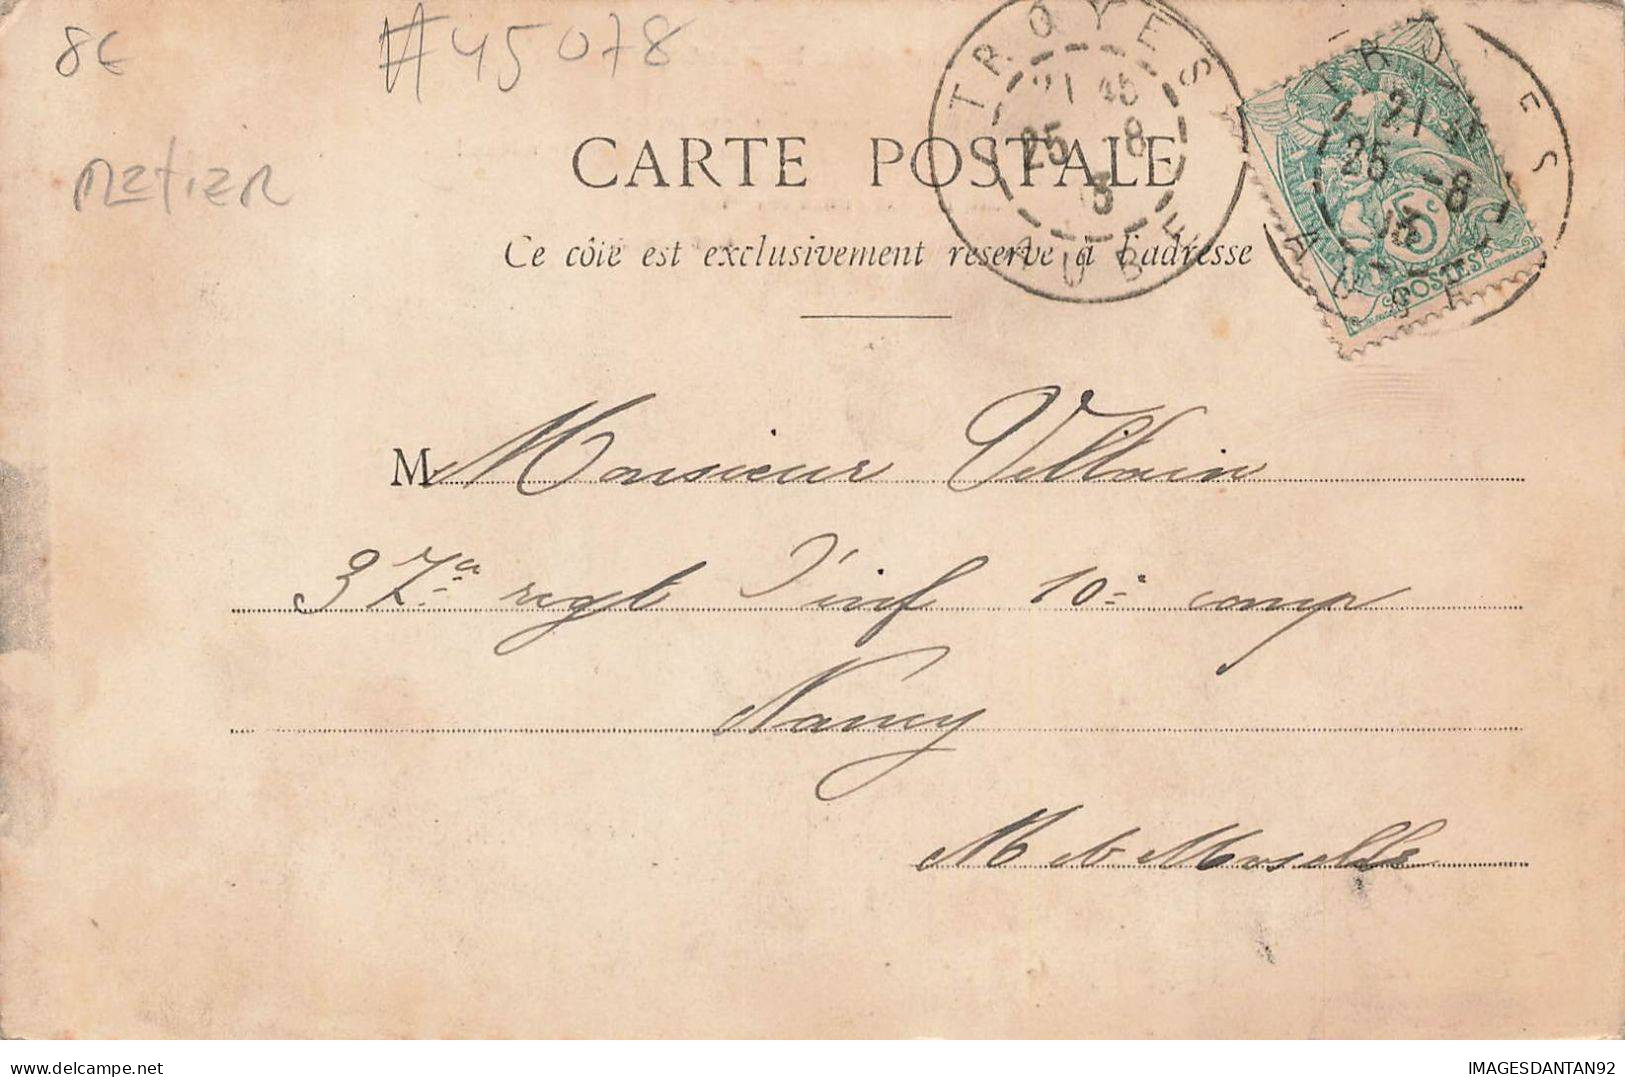 8€
#45078
metier
TROYES
21 45
25 8
AUBE
TROYES
21
25 -8
5c
POSTES
CARTE POSTALE
Ce côté est exclusivement réservé à l'adresse
M Monsieur Villain
37e regt d'inf 10e comp
Nancy
M et Moselle
IMAGESDANTAN92